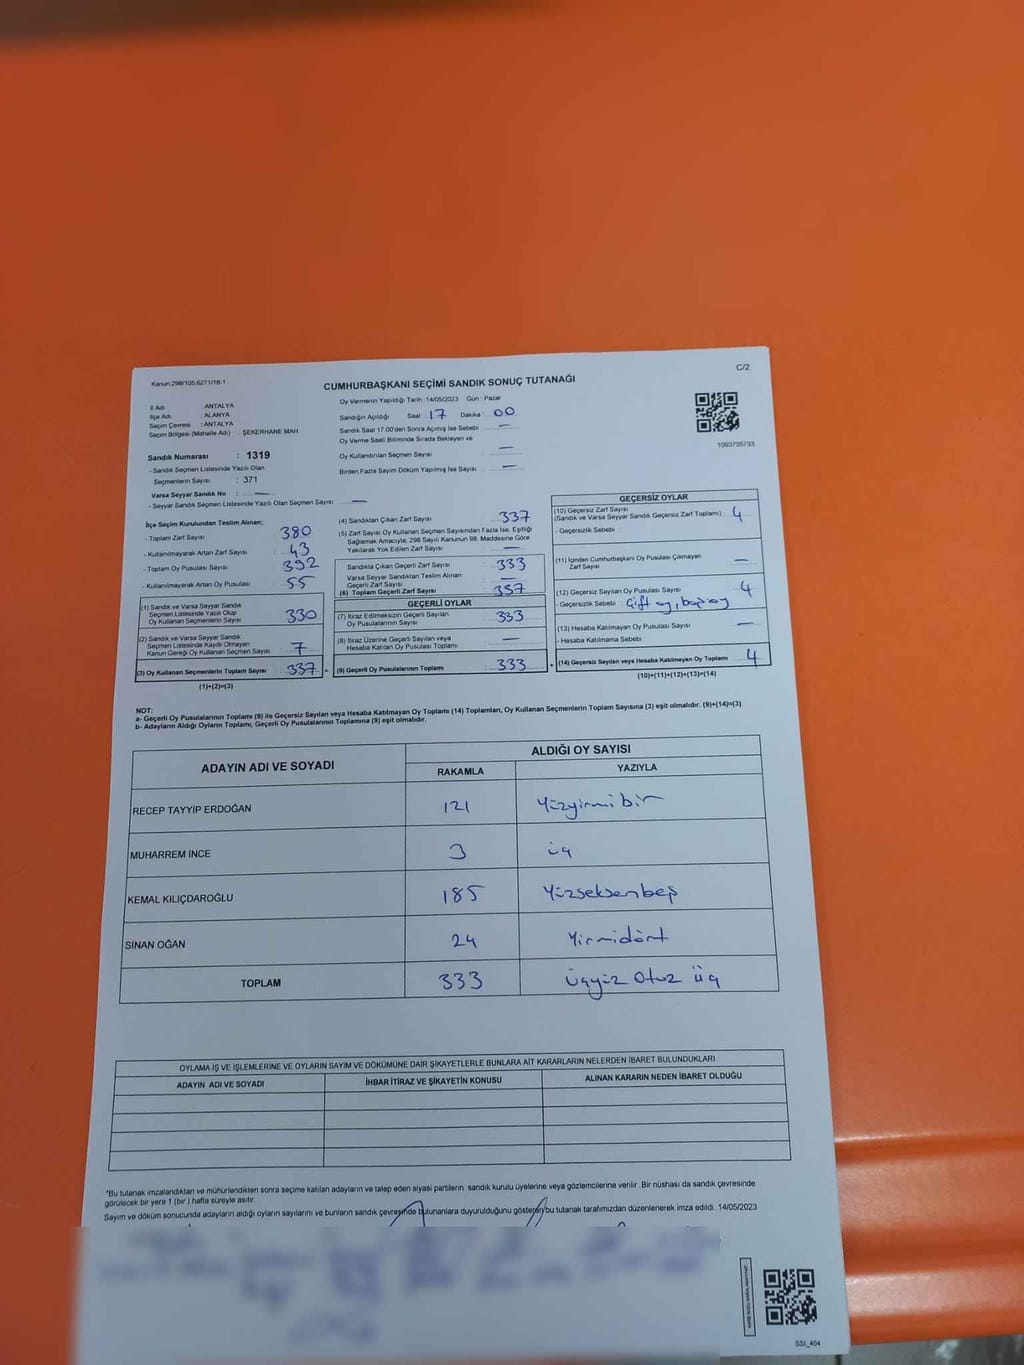 Kanun:298/105,6271/18-1
C/2
CUMHURBAŞKANI SEÇİMİ SANDIK SONUÇ TUTANAĞI
İl Adı : ANTALYA
İlçe Adı : ALANYA
Seçim Çevresi : ANTALYA
Seçim Bölgesi (Mahalle Adı) : ŞEKERHANE MAH.
Oy Vermenin Yapıldığı Tarih :14/05/2023 Gün : Pazar
Sandığın Açıldığı Saat 17 Dakika : 00
Sandık Saat 17.00'den Sonra Açılmış İse Sebebi : —
Oy Verme Saati Bitiminde Sırada Bekleyen ve
Oy Kullandırılan Seçmen Sayısı : —
Birden Fazla Sayım Döküm Yapılmış İse Sayısı : —
1093705733
Sandık Numarası : 1319
- Sandık Seçmen Listesinde Yazılı Olan
Seçmenlerin Sayısı : 371
Varsa Seyyar Sandık No : —
- Seyyar Sandık Seçmen Listesinde Yazılı Olan Seçmen Sayısı : —
İlçe Seçim Kurulundan Teslim Alınan;
- Toplam Zarf Sayısı : 380
- Kullanılmayarak Artan Zarf Sayısı : 43
- Toplam Oy Pusulası Sayısı : 392
- Kullanılmayarak Artan Oy Pusulası : 55
(1) Sandık ve Varsa Seyyar Sandık
Seçmen Listesinde Yazılı Olup
Oy Kullanan Seçmenlerin Sayısı : 330
(2) Sandık ve Varsa Seyyar Sandık
Seçmen Listesinde Kayıtlı Olmayan
Kanun Gereği Oy Kullanan Seçmen Sayısı : 7
(3) Oy Kullanan Seçmenlerin Toplam Sayısı : 337
(1)+(2)=(3)
(4) Sandıktan Çıkan Zarf Sayısı : 337
(5) Zarf Sayısı Oy Kullanan Seçmen Sayısından Fazla İse, Eşitliği
Sağlamak Amacıyla; 298 Sayılı Kanunun 98. Maddesine Göre
Yakılarak Yok Edilen Zarf Sayısı : —
Sandıkta Çıkan Geçerli Zarf Sayısı : 333
Varsa Seyyar Sandıktan Teslim Alınan
Geçerli Zarf Sayısı : —
(6) Toplam Geçerli Zarf Sayısı :
GEÇERLİ OYLAR
(7) İtiraz Edilmeksizin Geçerli Sayılan
Oy Pusulalarının Sayısı : 333
(8) İtiraz Üzerine Geçerli Sayılan veya
Hesaba Katılan Oy Pusulası Toplamı : —
(9) Geçerli Oy Pusulalarının Toplamı : 333
GEÇERSİZ OYLAR
(10) Geçersiz Zarf Sayısı
(Sandık ve Varsa Seyyar Sandık Geçersiz Zarf Toplamı) : 4
- Geçersizlik Sebebi :
(11) İçinden Cumhurbaşkanı Oy Pusulası Çıkmayan
Zarf Sayısı : —
(12) Geçersiz Sayılan Oy Pusulası Sayısı : 4
- Geçersizlik Sebebi : Çift oy, boş oy
(13) Hesaba Katılmayan Oy Pusulası Sayısı : —
- Hesaba Katılmama Sebebi :
(14) Geçersiz Sayılan veya Hesaba Katılmayan Oy Toplamı : 4
(10)+(11)+(12)+(13)=(14)
NOT:
a- Geçerli Oy Pusulalarının Toplamı (9) ile Geçersiz Sayılan veya Hesaba Katılmayan Oy Toplamı (14) Toplamları, Oy Kullanan Seçmenlerin Toplam Sayısına (3) eşit olmalıdır. (9)+(14)=(3)
b- Adayların Aldığı Oyların Toplamı, Geçerli Oy Pusulalarının Toplamına (9) eşit olmalıdır.
ADAYIN ADI VE SOYADI
ALDIĞI OY SAYISI
RAKAMLA YAZIYLA
RECEP TAYYİP ERDOĞAN 121 Yüzyirmibir
MUHARREM İNCE 3 üç
KEMAL KILIÇDAROĞLU 185 Yüzseksenbeş
SİNAN OĞAN 24 Yirmidört
TOPLAM 333 Üçyüz Otuz üç
OYLAMA İŞ VE İŞLEMLERİNE VE OYLARIN SAYIM VE DÖKÜMÜNE DAİR ŞİKAYETLERLE BUNLARA AİT KARARLARIN NELERDEN İBARET BULUNDUKLARI
ADAYIN ADI VE SOYADI İHBAR İTİRAZ VE ŞİKAYETİN KONUSU ALINAN KARARIN NEDEN İBARET OLDUĞU
*Bu tutanak imzalandıktan ve mühürlendikten sonra seçime katılan adayların ve talep eden siyasi partilerin sandık kurulu üyelerine veya gözlemcilerine verilir. Bir nüshası da sandık çevresinde
görülecek bir yere 1 (bir ) hafta süreyle asılır.
Sayım ve döküm sonucunda adayların aldığı oyların sayılarını ve bunların sandık çevresinde bulunanlara duyurulduğunu gösteren bu tutanak tarafımızdan düzenlenerek imza edildi. 14/05/2023
SSI_404